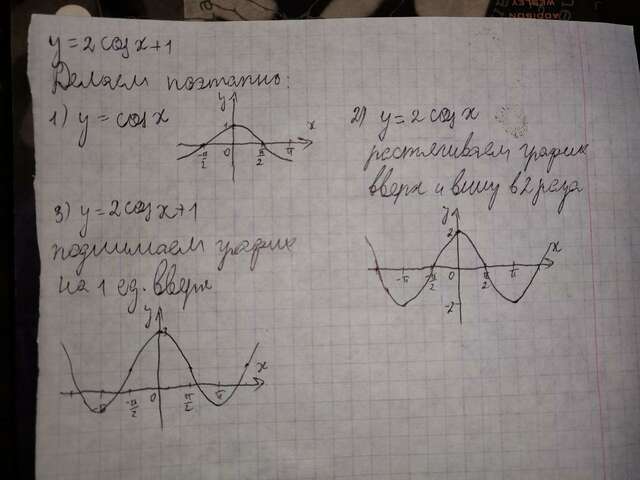 y = 2 cos x + 1
Делаем поэтапно:
1) y = cos x
y
1
x
-π/2
0
π/2
π
2) y = 2 cos x
растягиваем график
вверх и вниз в 2 раза
y
2
x
-π
-π/2
0
π/2
π
-2
3) y = 2 cos x + 1
поднимаем график
на 1 ед. вверх
y
3
x
-π/2
0
π/2
π
ADDISON
WESLEY